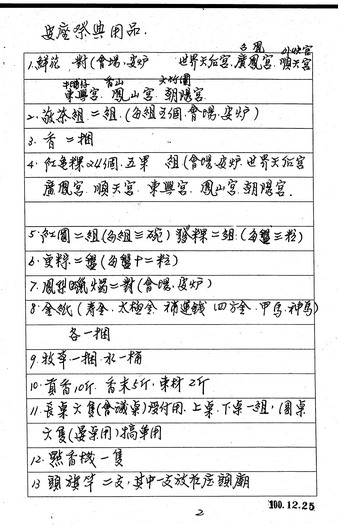 安座祭典用品.
白鳳 外埔宮
1.鮮花 對(會場.安炉 世界天后宮.廣鳳宮.順天宮
香山 文竹園
東興宮. 鳳山宮. 朝陽宮.
2.敬茶組二組.(每組三個.會場.安炉)
3. 香一捆
4. 紅龜粿24個.五果 組(會場.安炉.世界天后宮
廣鳳宮.順天宮.東興宮.鳳山宮.朝陽宮.
5.紅圓二組(每組三碗)發粿二組.(每盤三粒)
6. 二盤(每盤十二粒)
7.鳳梨蠟燭一對(會場.安炉)
8.金紙(壽金.太極金.補運錢 四方金.甲馬.神馬)
各一捆
9.牧草一捆.水一桶
10.貢香10斤.香末5斤.東材2斤
11.長桌六隻(會議桌)煙付用.上桌.下桌一組,圓桌
六隻(宴桌用)犒軍用
12.點香機一隻
13 頭旗竿二支,其中一支放在庄頭廟
2
100.12.25